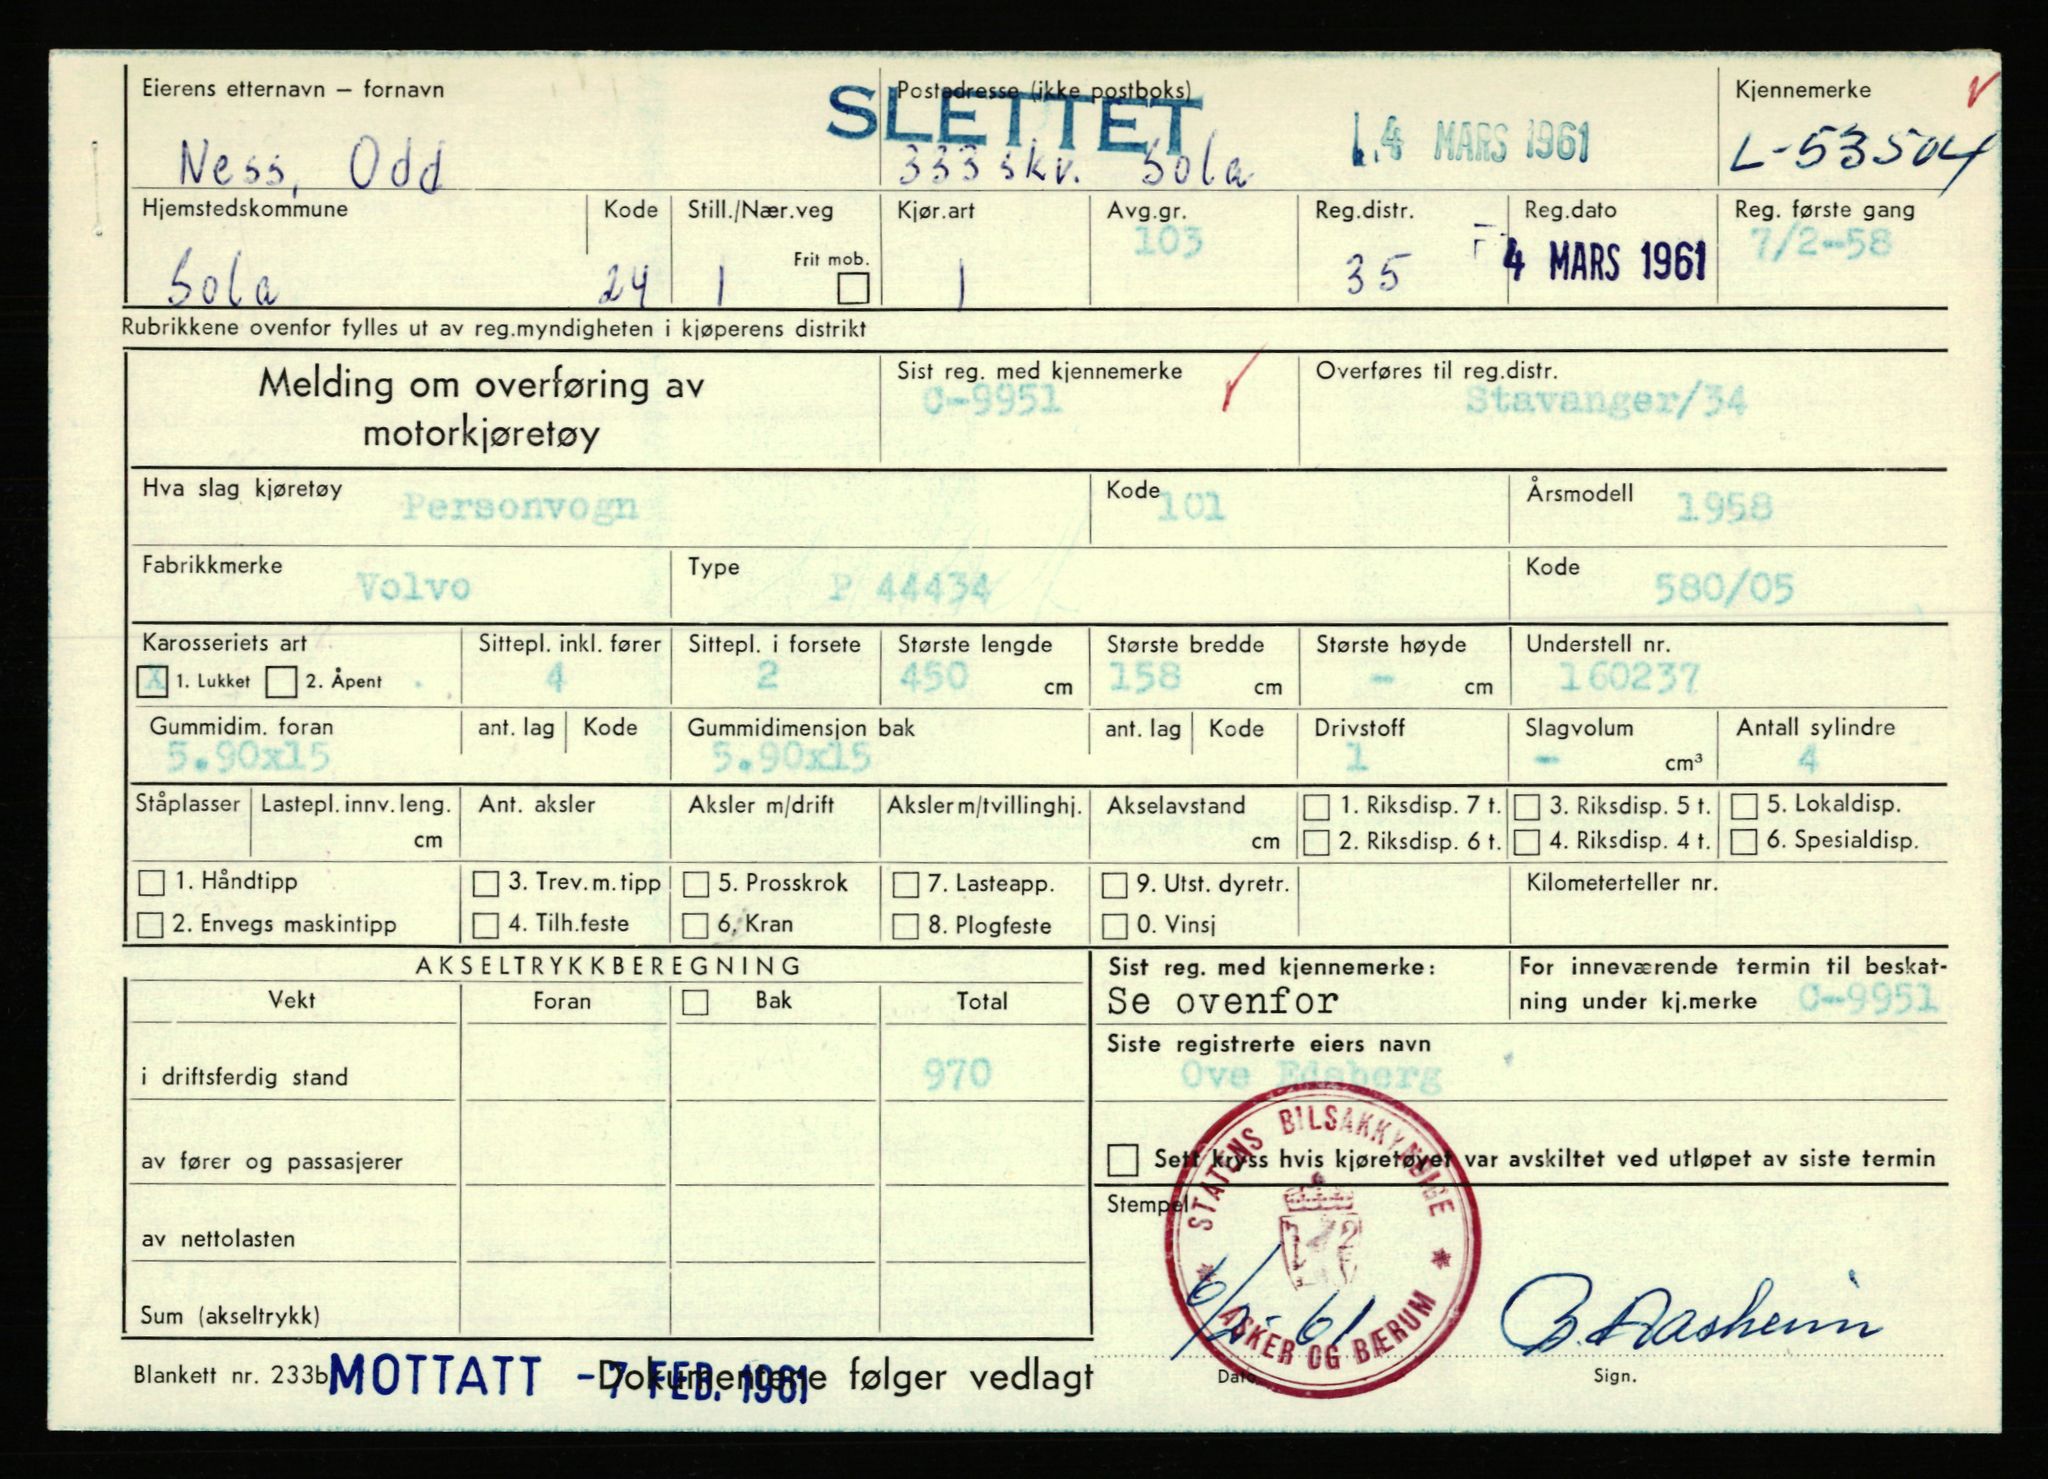 Eierens etternavn – fornavn
Postadresse (ikke postboks)
Kjennemerke
SLETTET
14 MARS 1961
Ness, Odd
333 skv. Sola
L-53504
Hjemstedskommune
Kode
Still./Nær.veg
Kjør.art
Avg.gr.
Reg.distr.
Reg.dato
Reg. første gang
103
7/2-58
Frit mob.
Sola
24
1
1
35
4 MARS 1961
Rubrikkene ovenfor fylles ut av reg.myndigheten i kjøperens distrikt
Melding om overføring av
motorkjøretøy
Sist reg. med kjennemerke
C-9951
Overføres til reg.distr.
Stavanger/34
Hva slag kjøretøy
Personvogn
Kode
101
Årsmodell
1958
Fabrikkmerke
Volvo
Type
P 44434
Kode
580/05
Karosseriets art
Sittepl. inkl. fører
Sittepl. i forsete
Største lengde
Største bredde
Største høyde
Understell nr.
X 1. Lukket
2. Åpent
4
2
450 cm
158 cm
- cm
160237
Gummidim. foran
ant. lag
Kode
Gummidimensjon bak
ant. lag
Kode
Drivstoff
Slagvolum
Antall sylindre
5.90x15
5.90x15
1
- cm³
4
Ståplasser
Lastepl. innv. leng.
Ant. aksler
Aksler m/drift
Aksler m/tvillinghj.
Akselavstand
1. Riksdisp. 7 t.
3. Riksdisp. 5 t.
5. Lokaldisp.
cm
cm
2. Riksdisp. 6 t.
4. Riksdisp. 4 t.
6. Spesialdisp.
1. Håndtipp
3. Trev. m. tipp
5. Prosskrok
7. Lasteapp.
9. Utst. dyretr.
Kilometerteller nr.
2. Envegs maskintipp
4. Tilh.feste
6. Kran
8. Plogfeste
0. Vinsj
AKSELTRYKKBEREGNING
Vekt
Foran
Bak
Total
i driftsferdig stand
970
av fører og passasjerer
av nettolasten
Sum (akseltrykk)
Sist reg. med kjennemerke:
Se ovenfor
For inneværende termin til beskat-
ning under kj.merke C-9951
Siste registrerte eiers navn
Ove Edsberg
Sett kryss hvis kjøretøyet var avskiltet ved utløpet av siste termin
Stempel
STATENS BILSAKKYNDIGE
ASKER OG BÆRUM
6/2-61
B. Aasheim
Dato
Sign.
Blankett nr. 233b
MOTTATT -7 FEB. 1961
Dokumentene følger vedlagt